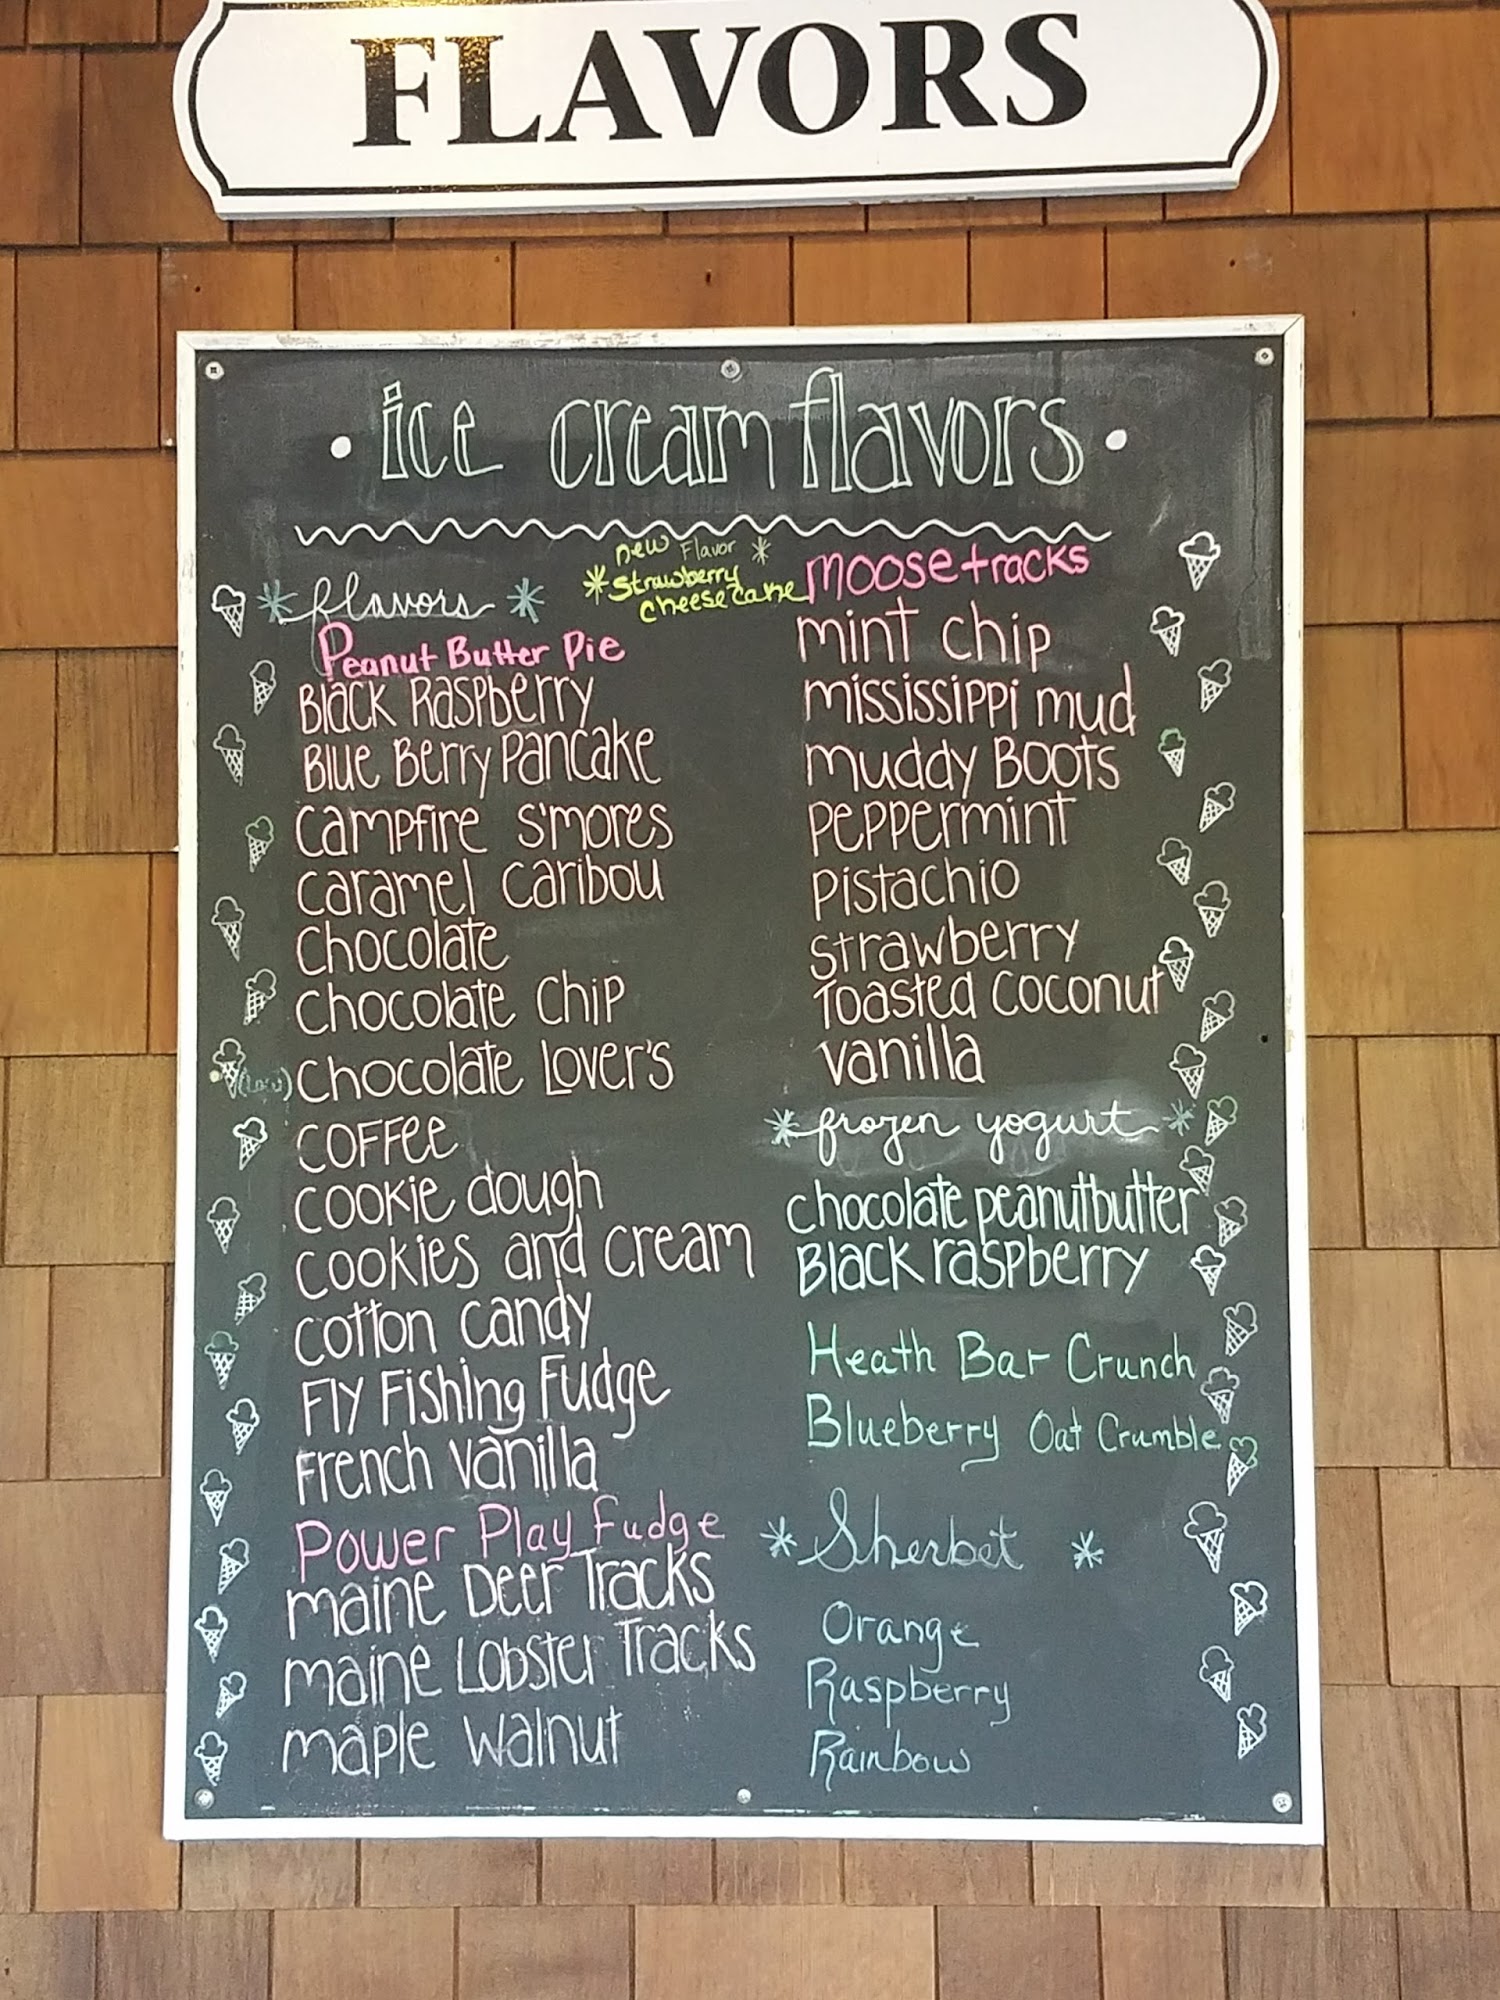 FLAVORS
• ice cream flavors •
* flavors *
Peanut Butter Pie
Black Raspberry
Blue Berry Pancake
campfire s'mores
caramel caribou
chocolate
chocolate chip
(low) chocolate Lover's
coffee
cookie dough
cookies and cream
cotton candy
Fly Fishing Fudge
French vanilla
Power Play Fudge
maine Deer Tracks
maine Lobster Tracks
maple walnut
new Flavor *
* Strawberry
cheesecake
moosetracks
mint chip
mississippi mud
muddy Boots
peppermint
pistachio
strawberry
Toasted coconut
vanilla
* frozen yogurt *
chocolate peanutbutter
Black raspberry
Heath Bar Crunch
Blueberry Oat Crumble
* Sherbet *
Orange
Raspberry
Rainbow